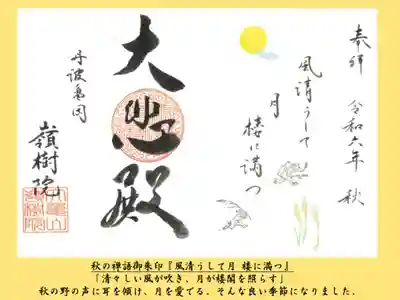 奉拝 令和六年 秋
風清うして
月
楼に満つ
大悲殿
丹波亀岡
嶺樹院
秋の禅語御朱印『風清うして月 楼に満つ』
「清々しい風が吹き、月が楼閣を照らす」
秋の野の声に耳を傾け、月を愛でる。そんな良い季節になりました。